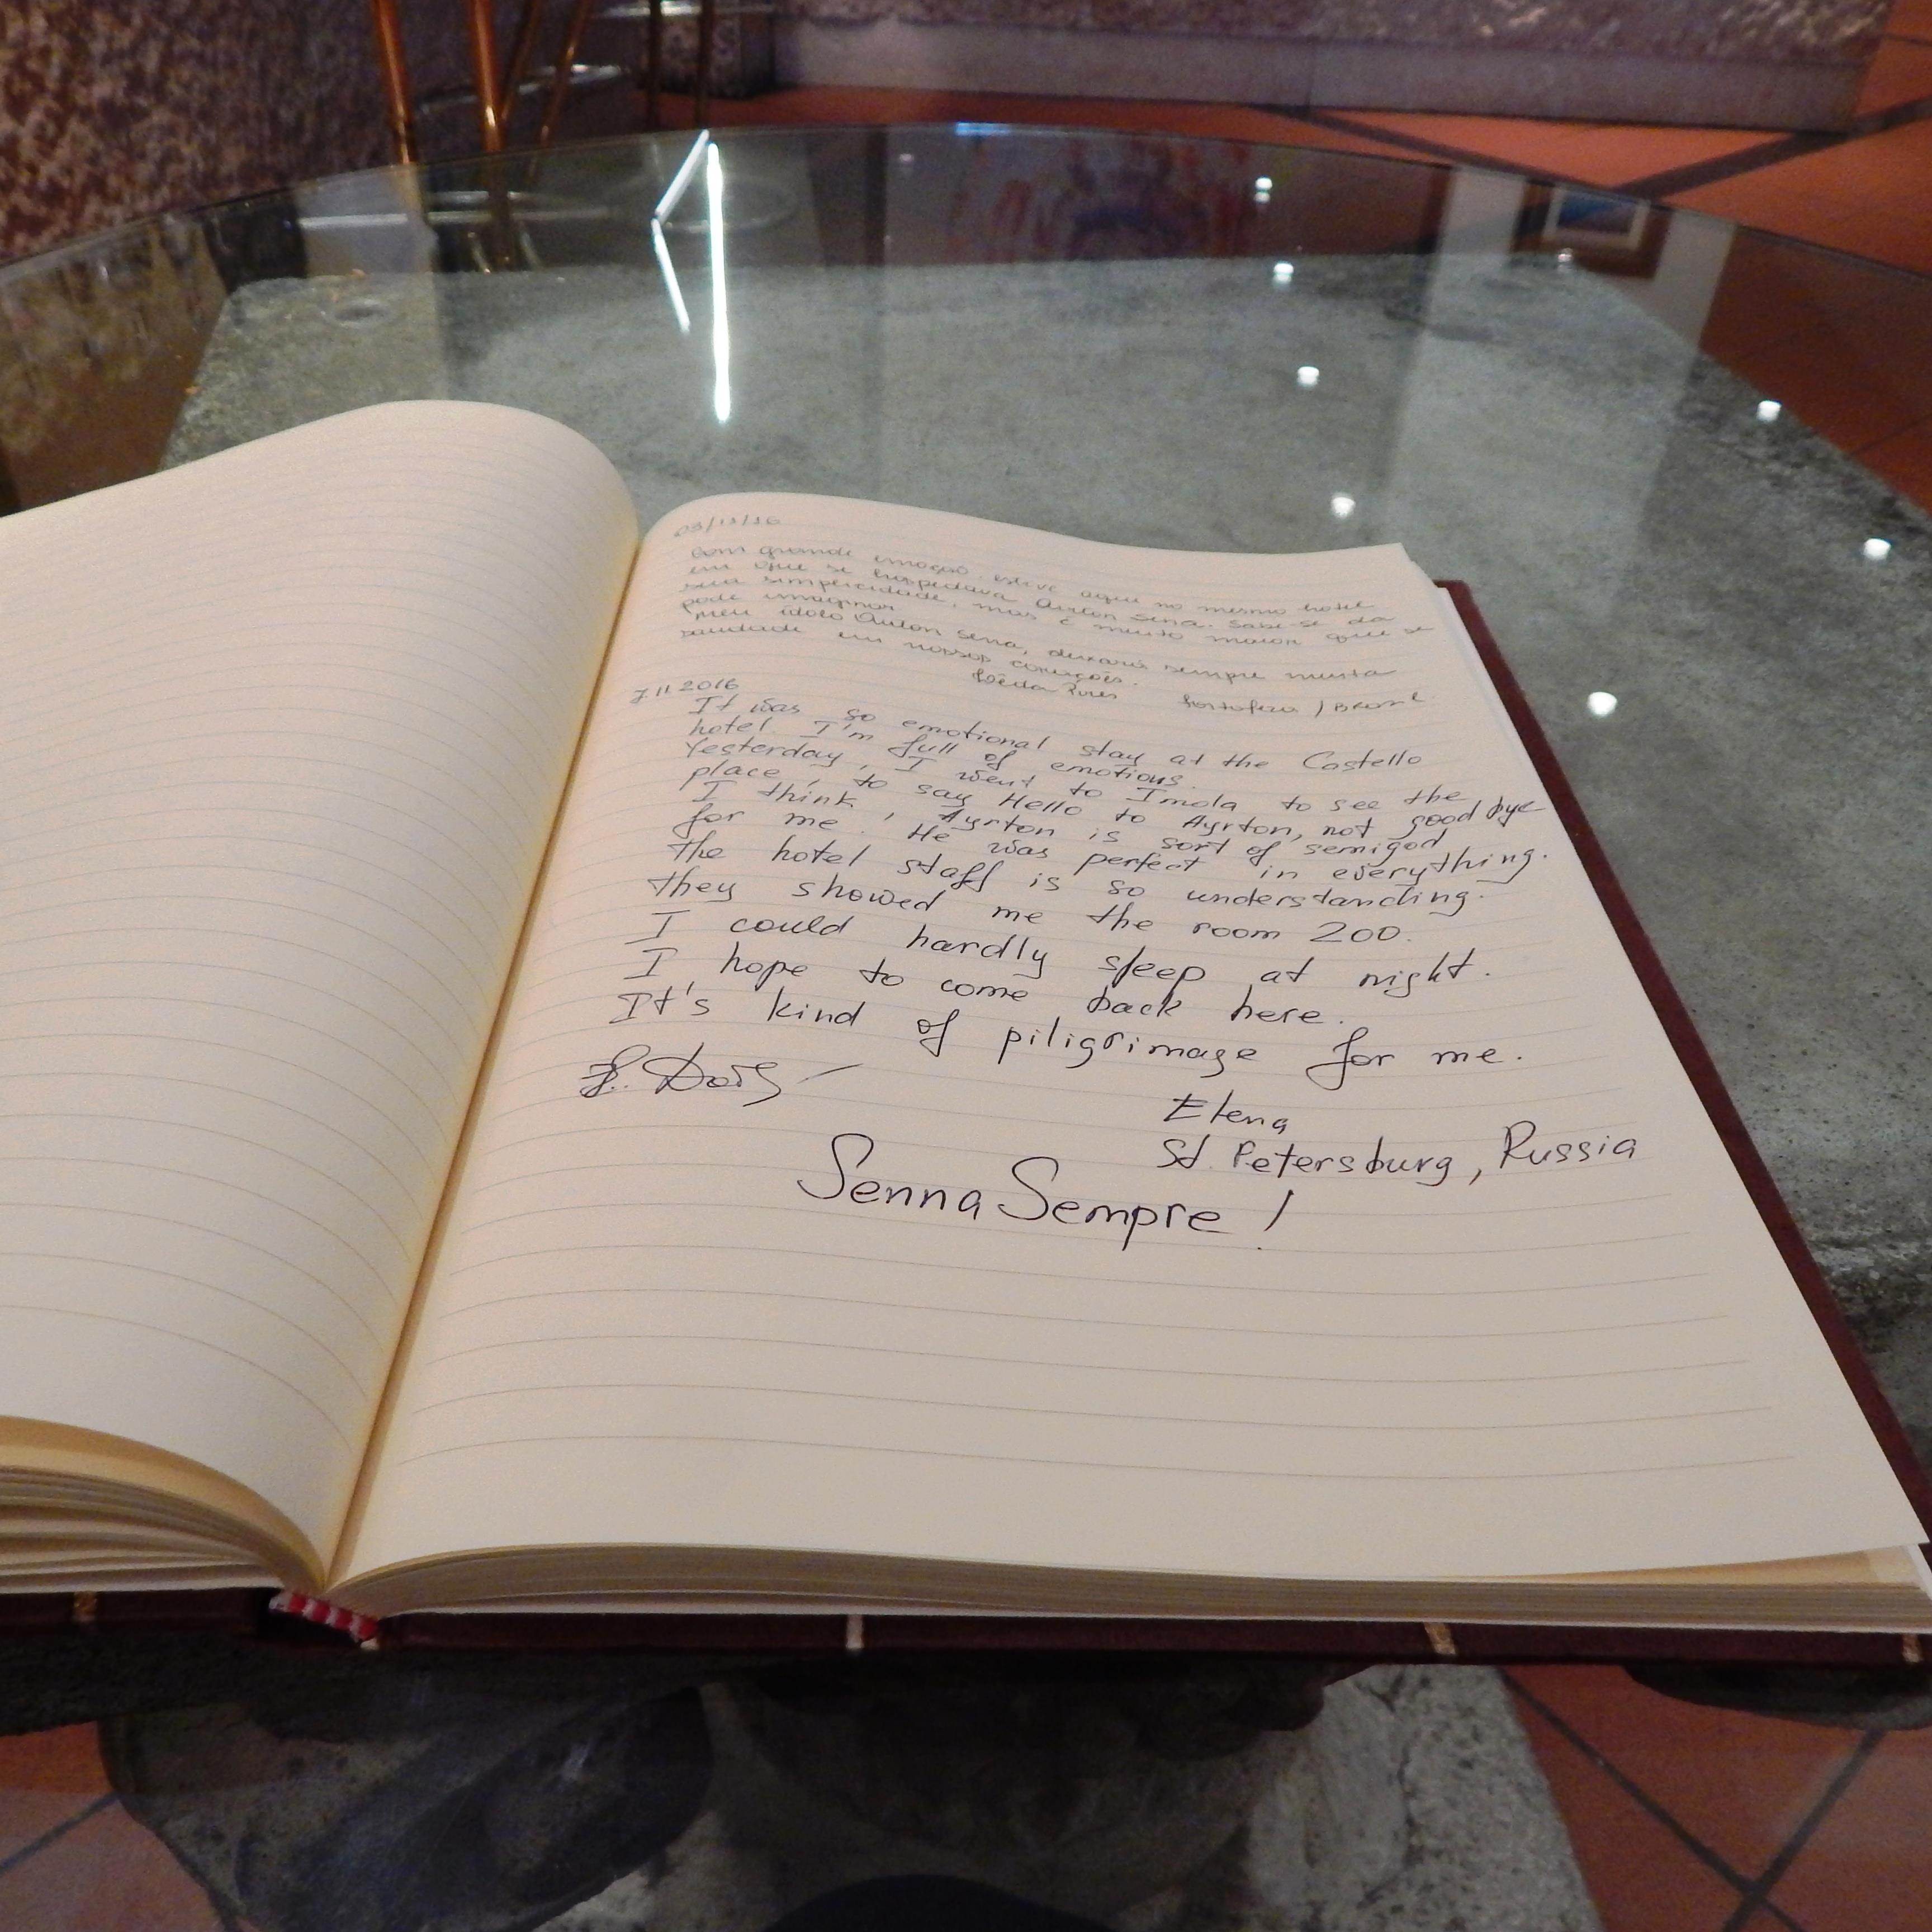 03/11/16
Com grande emoção estive aqui no mesmo hotel
em que se hospedava Airton Sena. Sabe-se da
sua simplicidade, mas é muito maior que se
pode imaginar
Meu ídolo Airton Sena, deixará sempre muita
saudade em nossos corações.
Fortaleza / Brasil
7.11.2016
It was so emotional stay at the Costello
hotel. I'm full of emotions.
Yesterday, I went to Imola to see the
place, to say Hello to Ayrton, not good bye
I think, Ayrton is sort of semigod
for me. He was perfect in everything.
The hotel staff is so understanding.
they showed me the room 200.
I could hardly sleep at night.
I hope to come back here.
It's kind of piligrimage for me.
Elena
St. Petersburg, Russia
Senna Sempre!